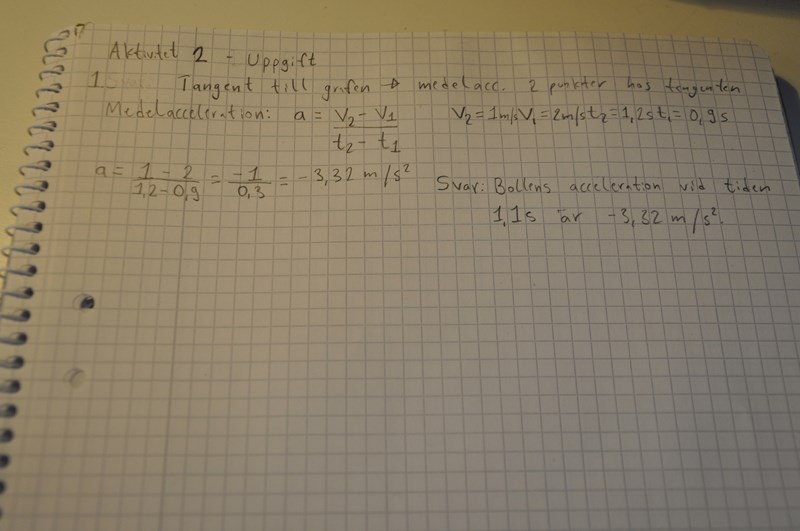 Aktivitet 2 - Uppgift
1. Tangent till grafen → medelacc. 2 punkter hos tangenten
Medelacceleration: a = (V₂ - V₁) / (t₂ - t₁) V₂ = 1m/s V₁ = 2m/s t₂ = 1,2s t₁ = 0,9s
a = (1 - 2) / (1,2 - 0,9) = -1 / 0,3 = -3,32 m/s²
Svar: Bollens acceleration vid tiden
1,1s är -3,32 m/s².